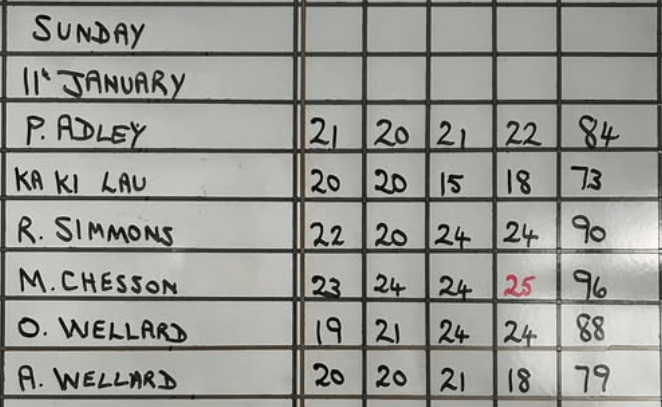 SUNDAY
11th JANUARY
P. ADLEY 21 20 21 22 84
KA KI LAU 20 20 15 18 73
R. SIMMONS 22 20 24 24 90
M. CHESSON 23 24 24 25 96
O. WELLARD 19 21 24 24 88
A. WELLARD 20 20 21 18 79